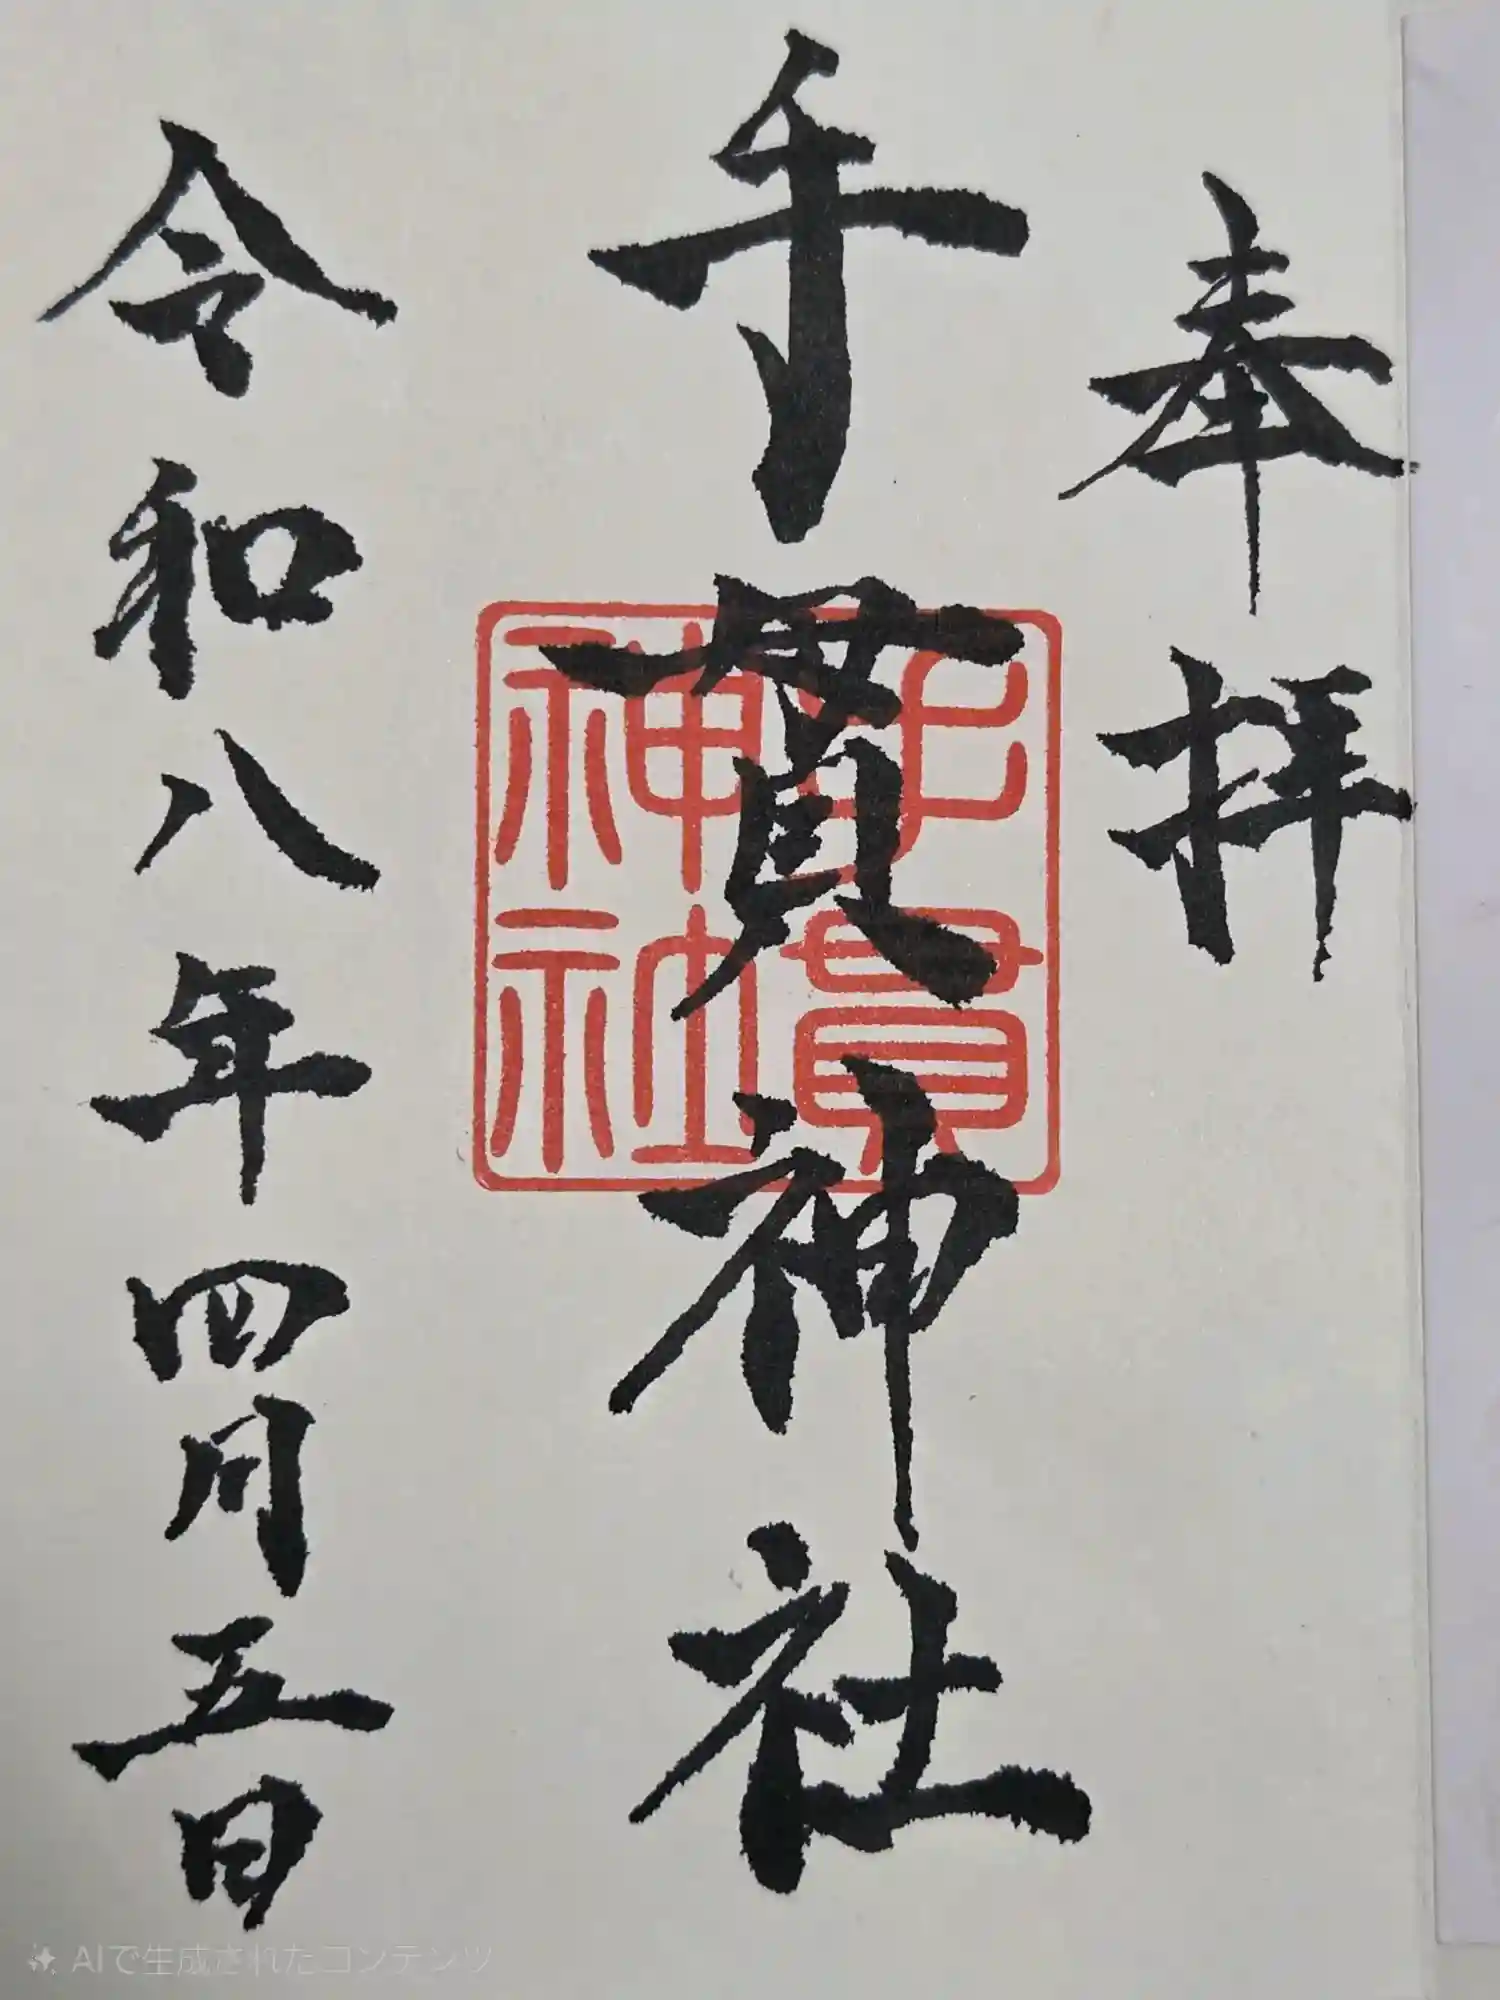 奉拝
千貫神社
千貫神社
令和八年四月五日
AIで生成されたコンテンツ